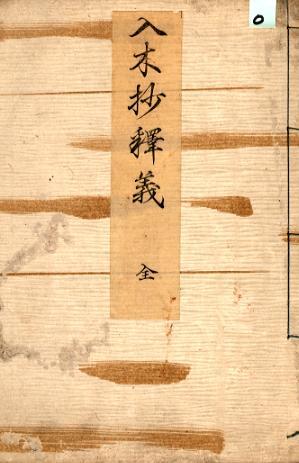 入木抄釋義
全
0